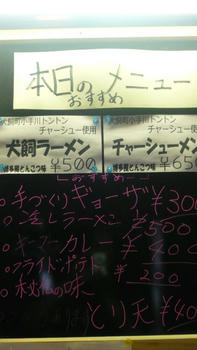 本日のメニュー
おすすめ
犬飼町小手川トントン
チャーシュー使用
犬飼ラーメン
博多風とんこつ味 ¥500
犬飼町小手川トントン
チャーシュー使用
チャーシューメン
博多風とんこつ味 ¥650
おすすめ
手づくりギョーザ ¥300
冷しラーメン ¥500
キーマーカレー ¥400
フライドポテト ¥200
の味
とり天 ¥40